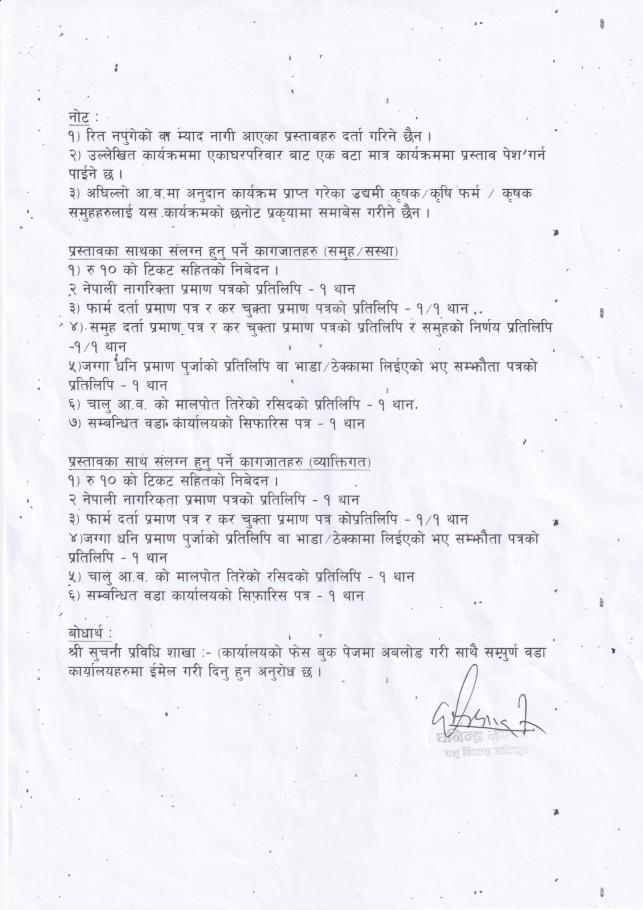 नोट :
१) रित नपुगेको वा म्याद नागी आएका प्रस्तावहरु दर्ता गरिने छैन ।
२) उल्लेखित कार्यक्रममा एकाघरपरिवार बाट एक वटा मात्र कार्यक्रममा प्रस्ताव पेश गर्न
पाईने छ ।
३) अघिल्लो आ.व.मा अनुदान कार्यक्रम प्राप्त गरेका उद्यमी कृषक/कृषि फर्म / कृषक
समुहहरुलाई यस कार्यक्रमको छनोट प्रकृयामा समाबेस गरीने छैन ।
प्रस्तावका साथका संलग्न हुनु पर्ने कागजातहरु (समुह/सस्था)
१) रु १० को टिकट सहितको निबेदन ।
२ नेपाली नागरिक्ता प्रमाण पत्रको प्रतिलिपि - १ थान
३) फार्म दर्ता प्रमाण पत्र र कर चुक्ता प्रमाण पत्रको प्रतिलिपि - १/१ थान
४) समुह दर्ता प्रमाण पत्र र कर चुक्ता प्रमाण पत्रको प्रतिलिपि र समुहको निर्णय प्रतिलिपि
-१/१ थान
५)जग्गा धनि प्रमाण पुर्जाको प्रतिलिपि वा भाडा/ठेक्कामा लिईएको भए सम्झौता पत्रको
प्रतिलिपि - १ थान
६) चालु आ.व. को मालपोत तिरेको रसिदको प्रतिलिपि - १ थान.
७) सम्बन्धित वडा कार्यालयको सिफारिस पत्र - १ थान
प्रस्तावका साथ संलग्न हुनु पर्ने कागजातहरु (व्याक्तिगत)
१) रु १० को टिकट सहितको निबेदन ।
२ नेपाली नागरिकता प्रमाण पत्रको प्रतिलिपि - १ थान
३) फार्म दर्ता प्रमाण पत्र र कर चुक्ता प्रमाण पत्र कोप्रतिलिपि - १/१ थान
४)जग्गा धनि प्रमाण पुर्जाको प्रतिलिपि वा भाडा/ठेक्कामा लिईएको भए सम्झौता पत्रको
प्रतिलिपि - १ थान
५) चालु आ.व. को मालपोत तिरेको रसिदको प्रतिलिपि - १ थान
६) सम्बन्धित वडा कार्यालयको सिफारिस पत्र - १ थान
बोधार्थ :
श्री सुचना प्रविधि शाखा :- (कार्यालयको फेस बुक पेजमा अबलोड गरी साथै सम्पुर्ण वडा
कार्यालयहरुमा ईमेल गरी दिनु हुन अनुरोध छ ।
पशु विकास अधिकृत